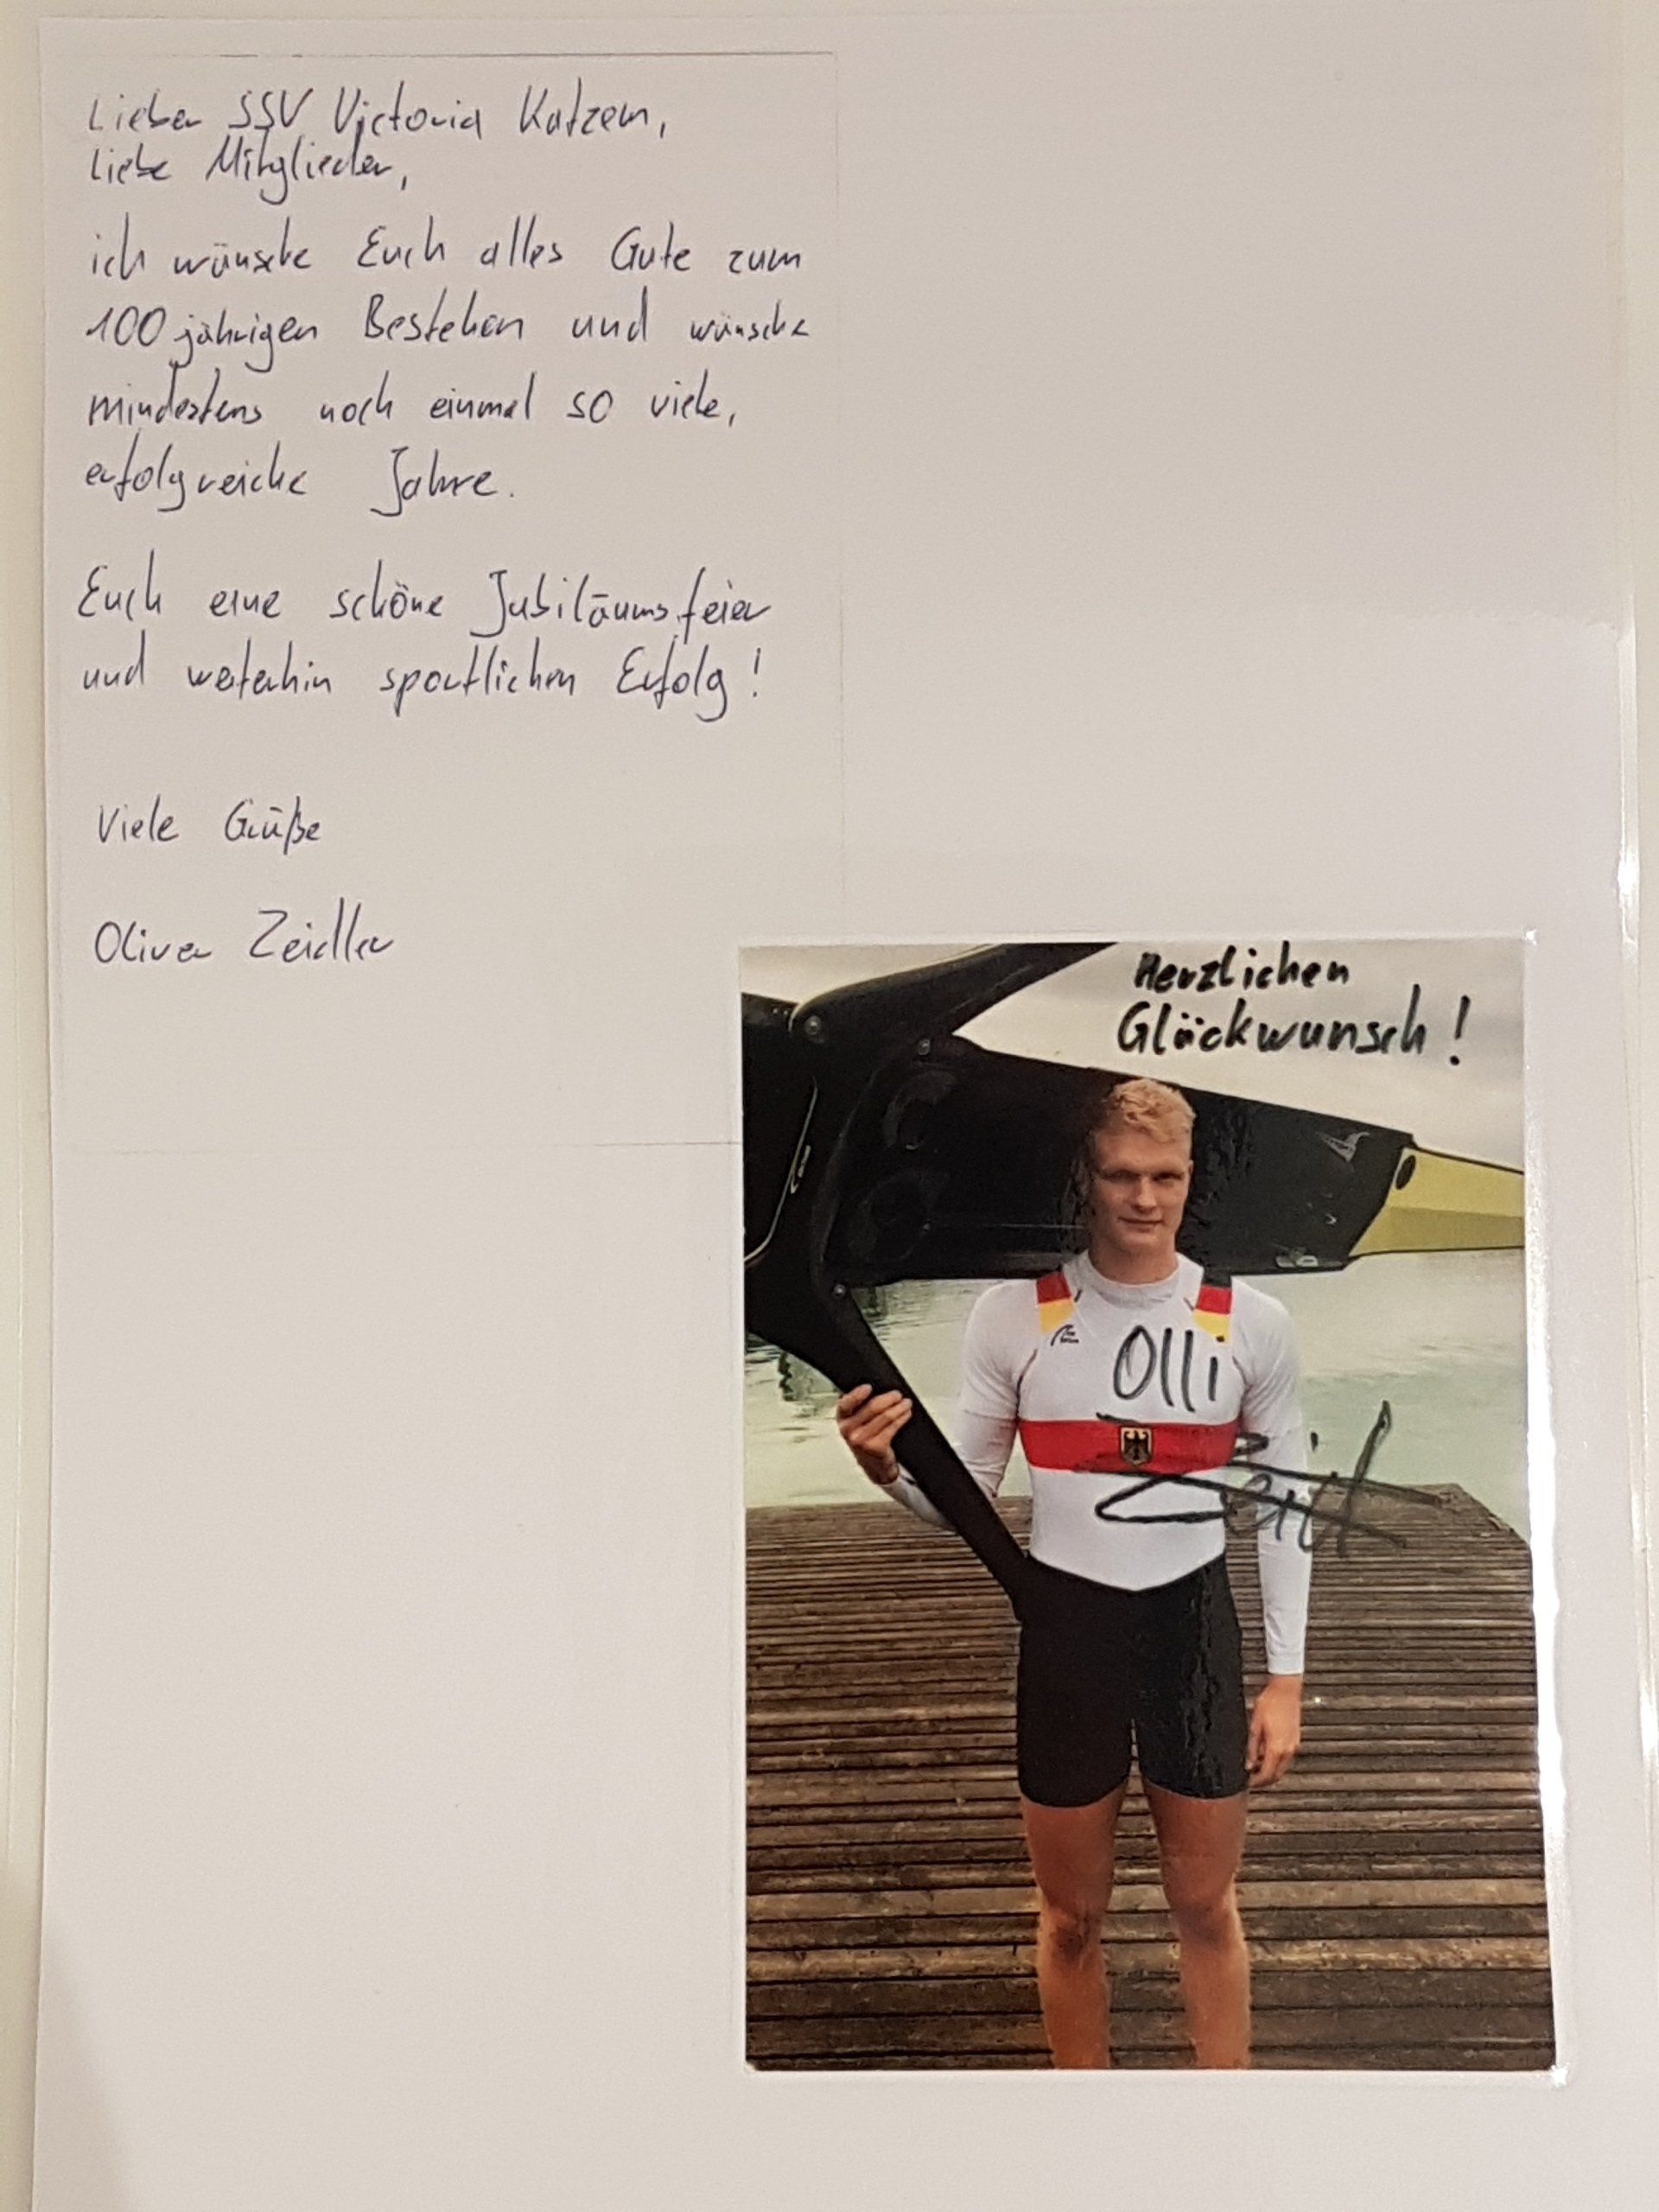 Lieber SSV Victoria Katzem,
liebe Mitglieder,
ich wünsche Euch alles Gute zum
100jährigen Bestehen und wünsche
mindestens noch einmal so viele,
erfolgreiche Jahre.
Euch eine schöne Jubiläumsfeier
und weiterhin sportlichen Erfolg!
Viele Grüße
Oliver Zeidler
Herzlichen
Glückwunsch!
Olli